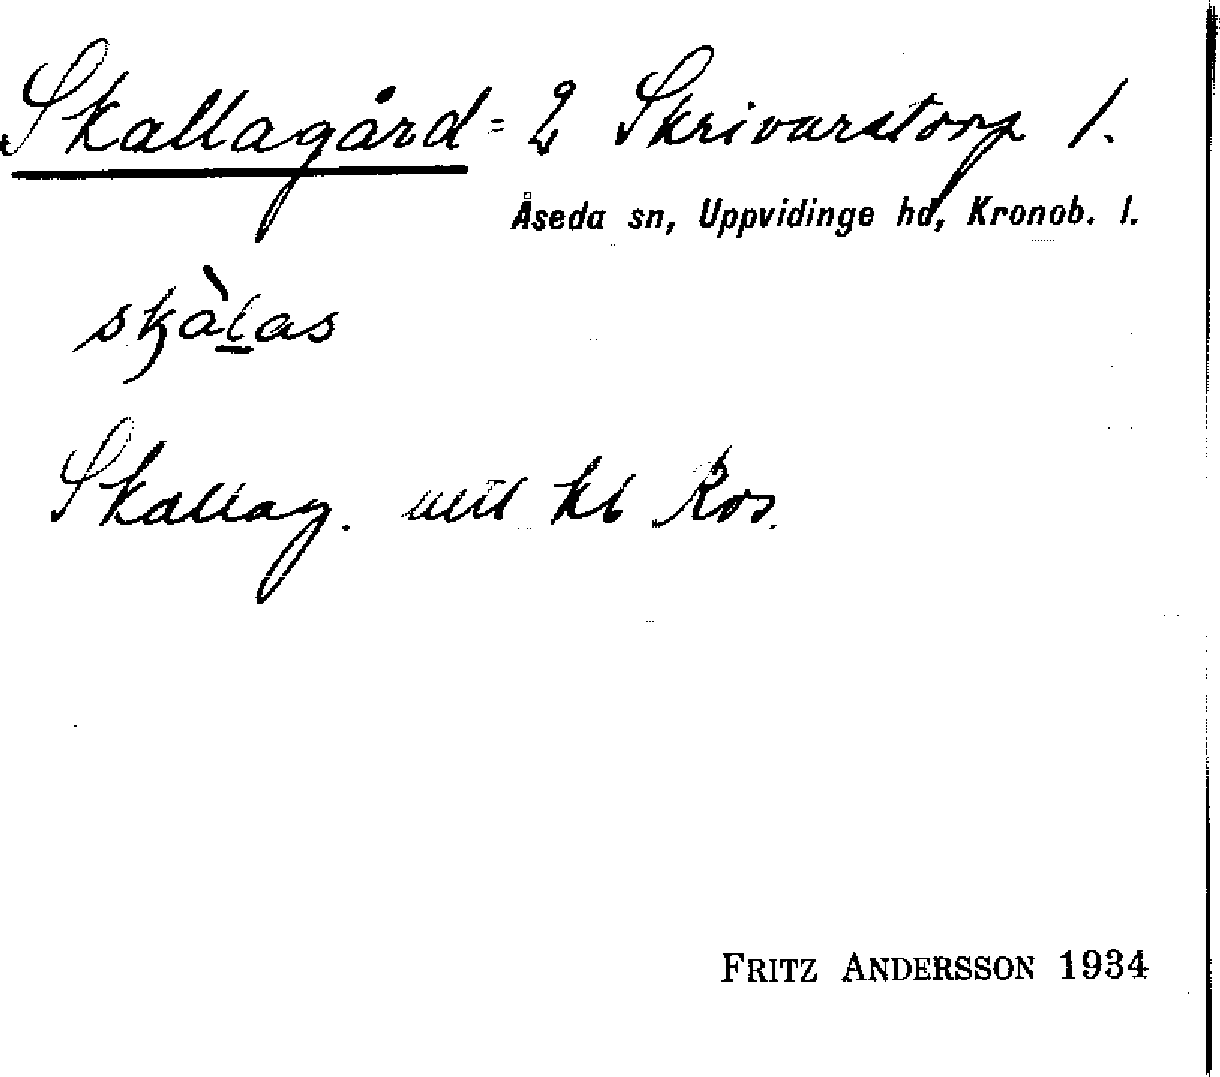 Skallagård = 2 Skrivarstorp 1.
Åseda sn, Uppvidinge hd, Kronob. l.
skàlas
Skallag. kb Ros.
FRITZ ANDERSSON 1934